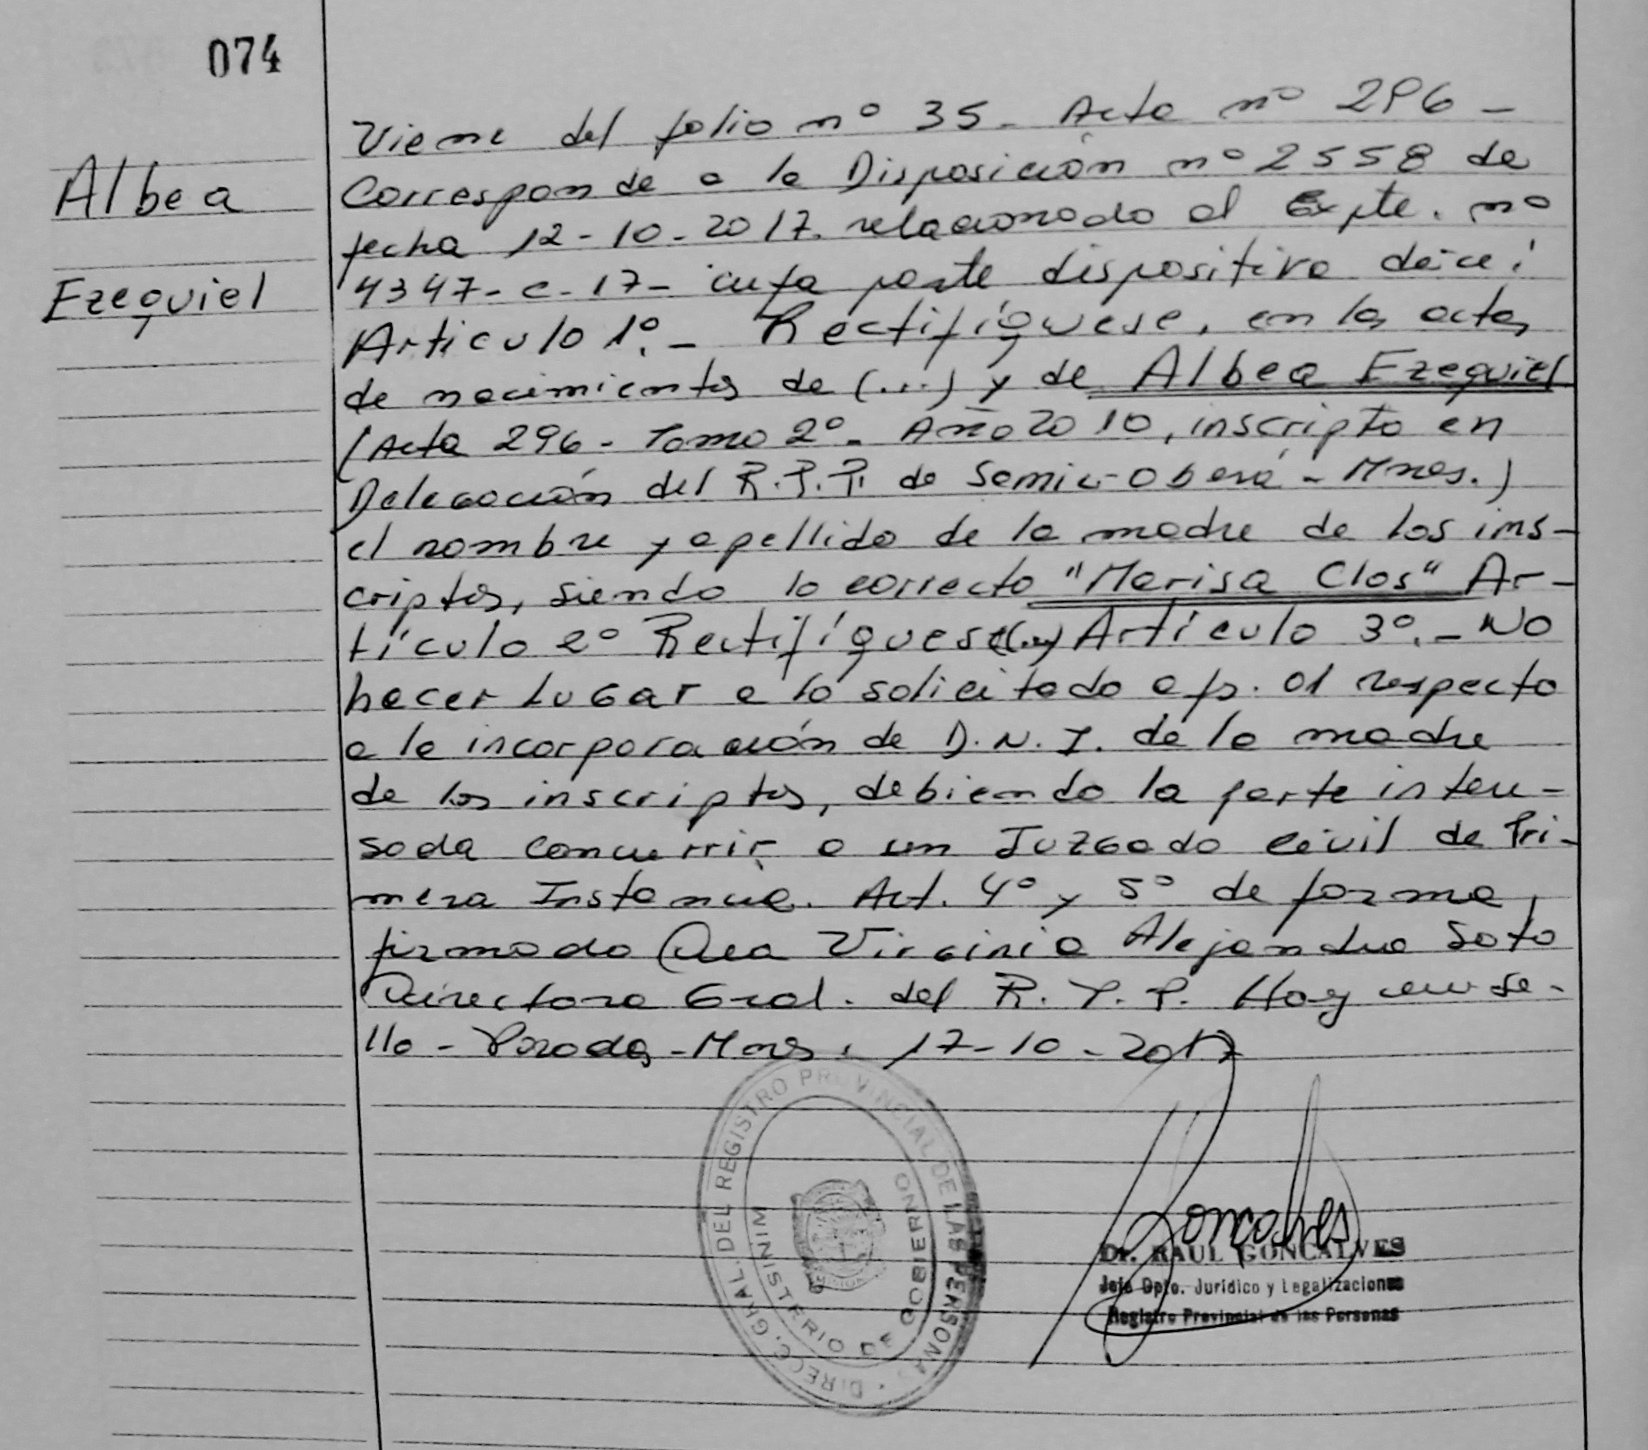 074
Albea
Ezequiel
Viene del folio nº 35- Acta nº 296-
Corresponde a la Disposición nº 2558 de
fecha 12-10-2017. relacionado al Expte. nº
4347-C-17- cuya parte dispositiva dice:
Artículo 1º.- Rectifíquese, en las actas
de nacimientos de (...) y de Albea Ezequiel
(Acta 296- Tomo 2º- Año 2010, inscripto en
Delegación del R.P.P. de Semic-Oberá-Mnes.)
el nombre y apellido de la madre de los ins-
criptos, siendo lo correcto "Marisa Clos" Ar-
tículo 2º Rectifíquese (...) Artículo 3º.- No
hacer lugar a lo solicitado a fs. 01 respecto
a la incorporación de D.N.I. de la madre
de los inscriptos, debiendo la parte intere-
sada concurrir a un Juzgado Civil de Pri-
mera Instancia. Art. 4º y 5º de forma,
firmado Dra Virginia Alejandra Soto
Directora Gral. del R.P.P. Hay un se-
llo- Posadas-Mnes, 17-10-2017
DIRECC. GRAL. DEL REGISTRO PROVINCIAL DE LAS PERSONAS
MINISTERIO DE GOBIERNO
Goncalves
Dr. RAUL GONCALVES
Jefe Dpto. Jurídico y Legalizaciones
Registro Provincial de las Personas